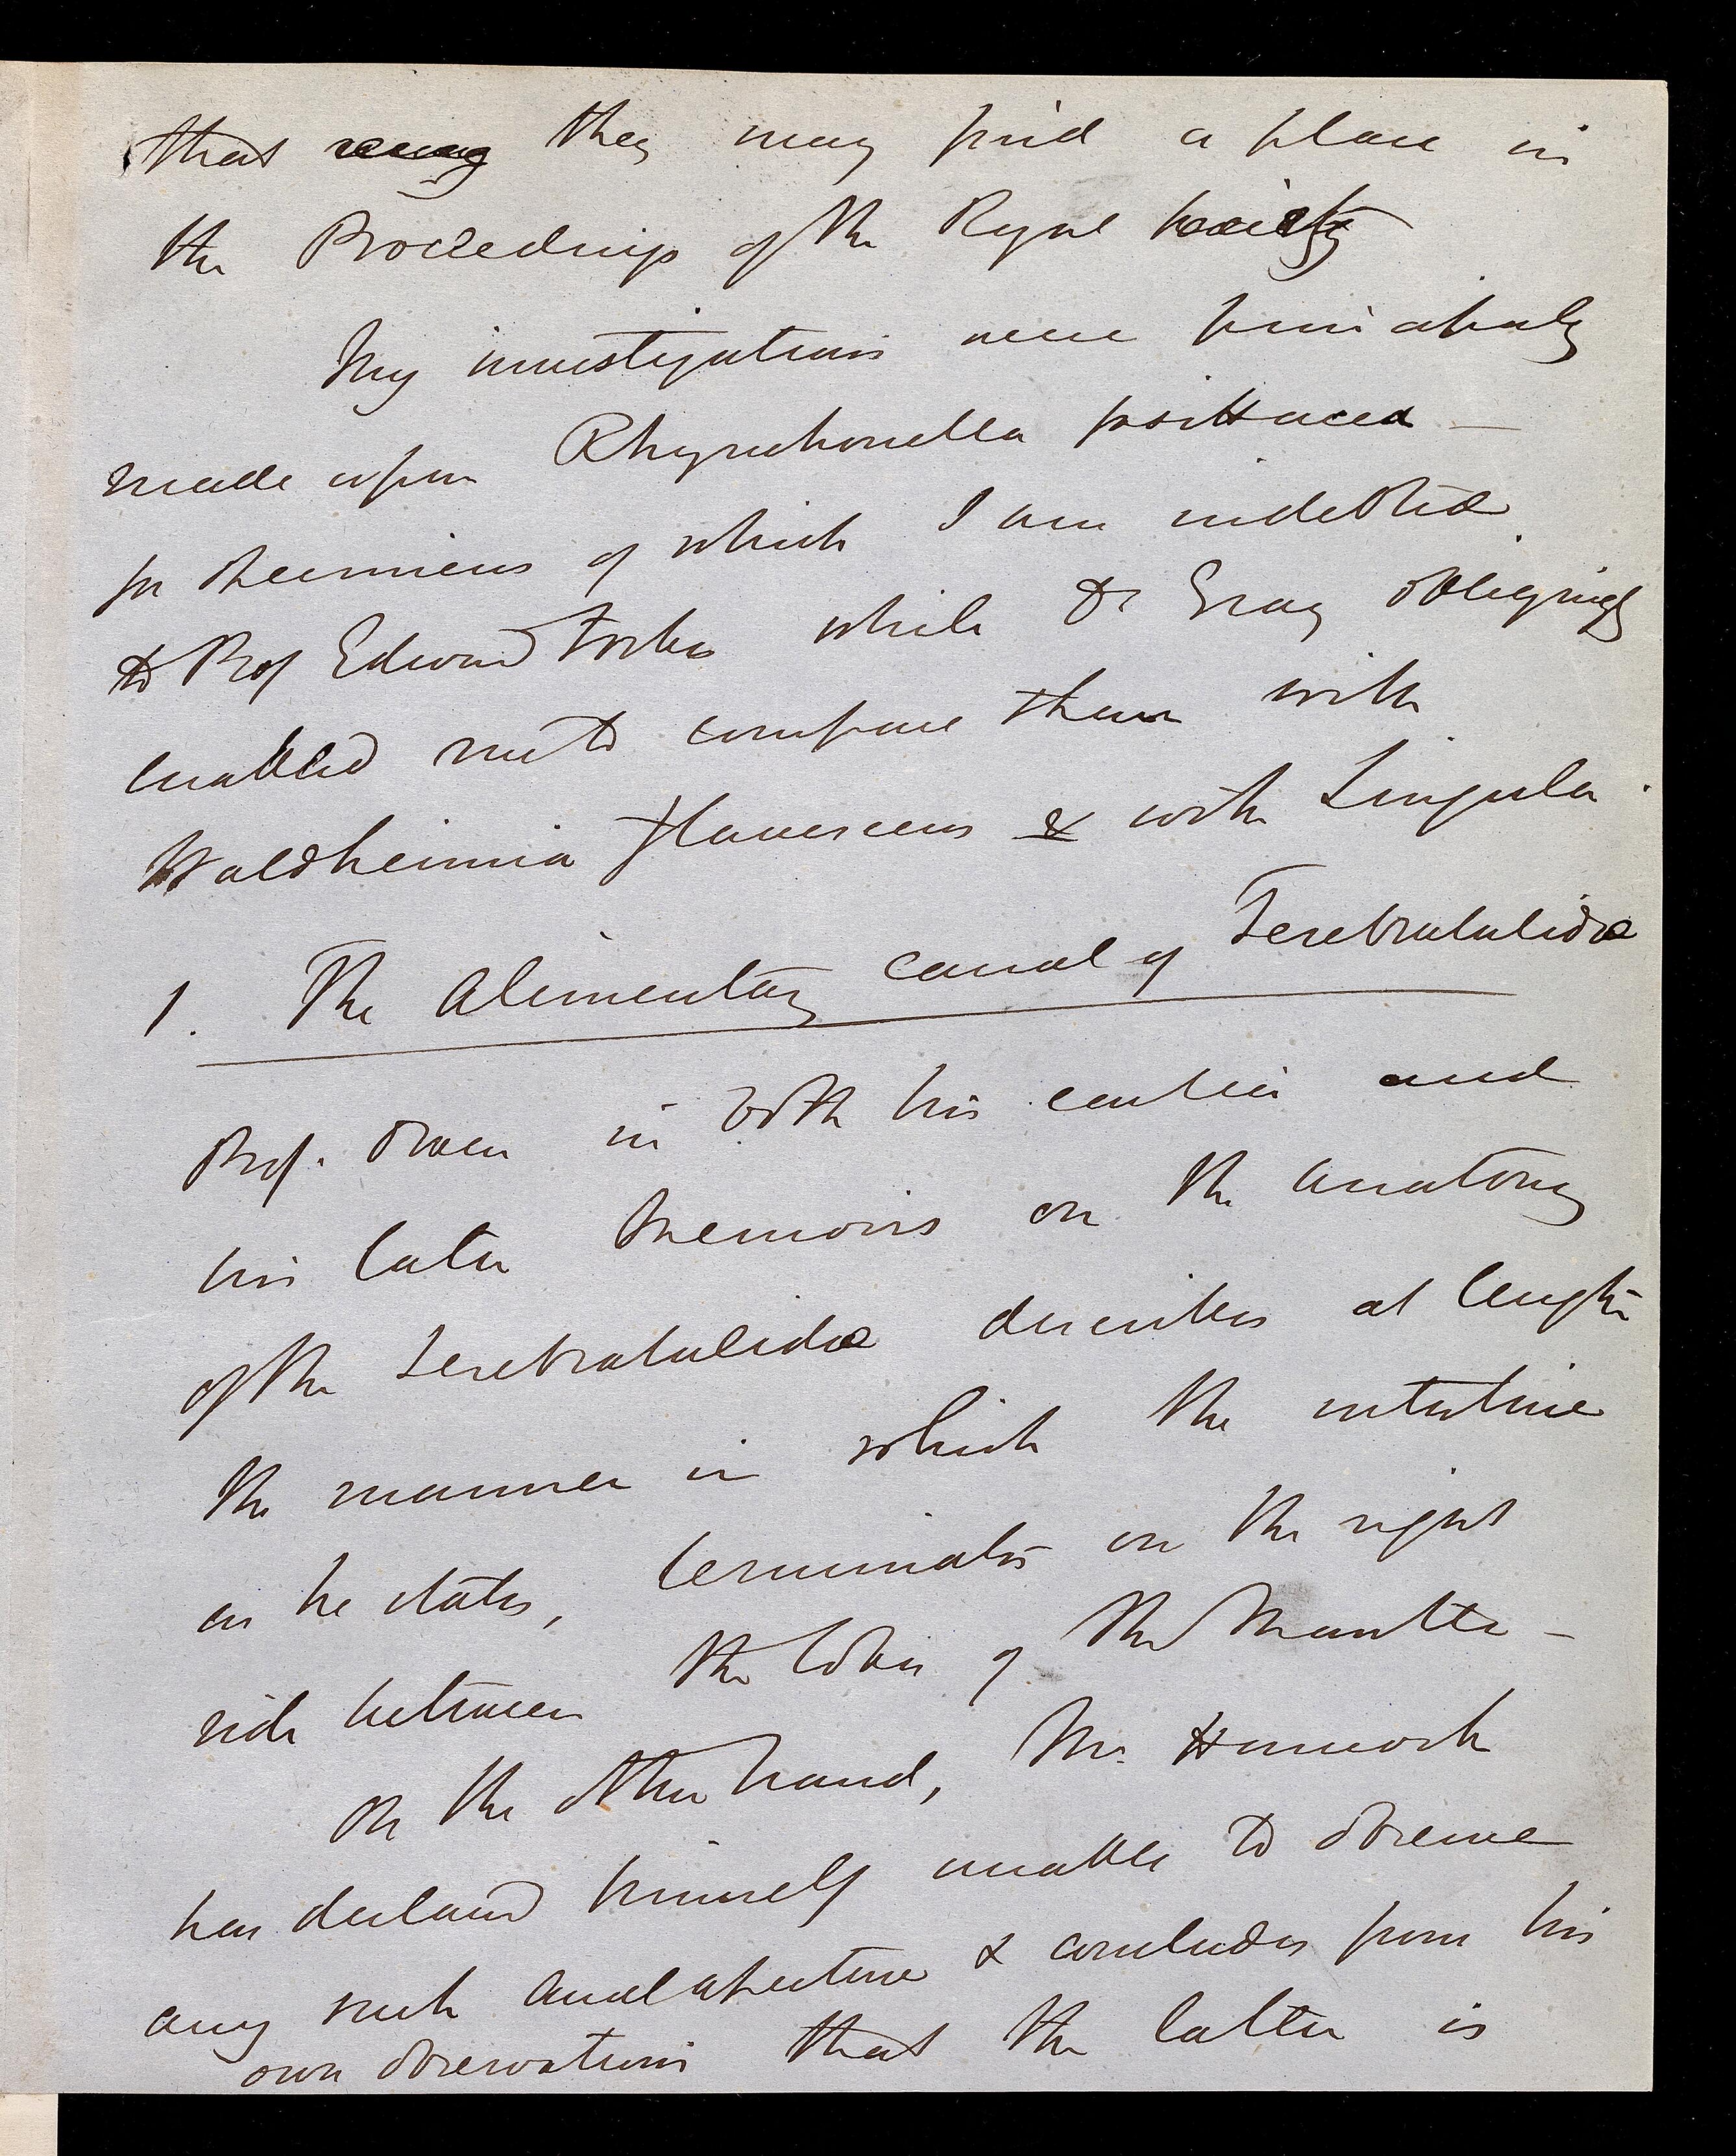 that they may find a place in
the Proceedings of the Royal Society
My investigations were principally
made upon Rhynchonella psittacea —
for specimens of which I am indebted
to Prof Edward Forbes while Dr Gray obligingly
enabled me to compare them with
Waldheimia flavescens & with Lingula.
1. The Alimentary canal of Terebratulidæ
Prof. Owen in both his earlier and
his later Memoirs on the anatomy
of the Terebratulidæ describes at length
the manner in which the intestine
as he states, terminates on the right
side between the lobes of the Mantle —
On the other hand, Mr. Hancock
has declared himself unable to observe
any such anal aperture & concludes from his
own observations that the latter is